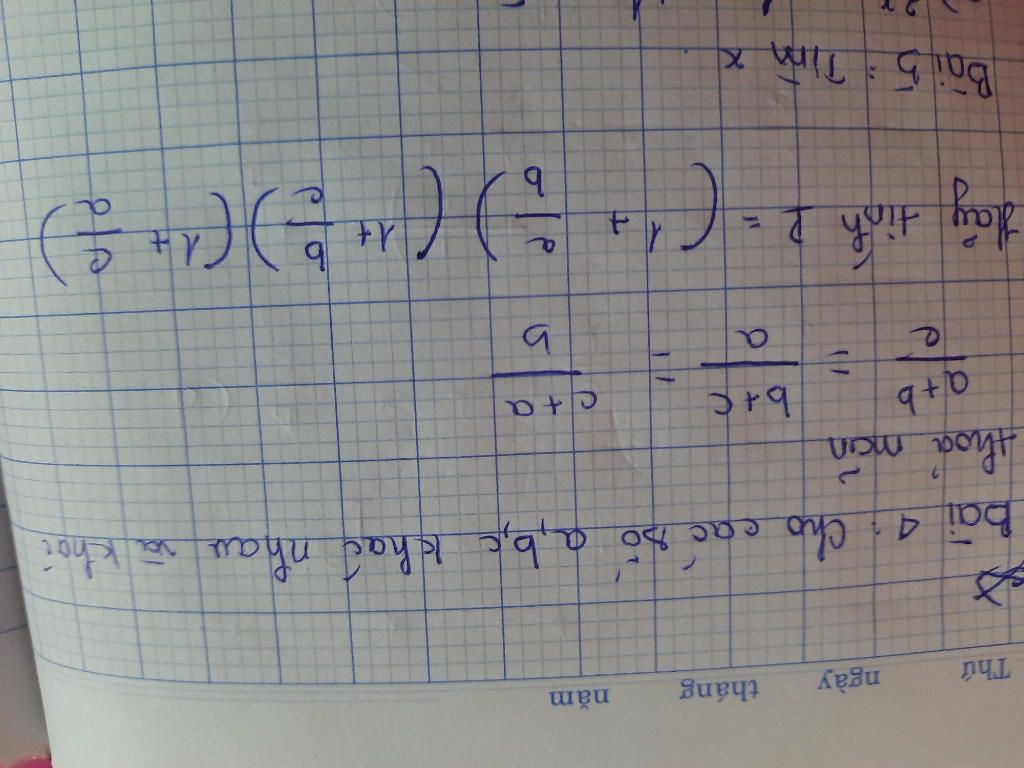 Thứ ngày tháng năm
Bài 4: Cho các số a,b,c khác nhau và khác
thoả mãn
a+b/c = b+c/a = c+a/b
Hãy tính P = (1 + a/b) (1+ b/c) (1+ c/a)
Bài 5: Tìm x